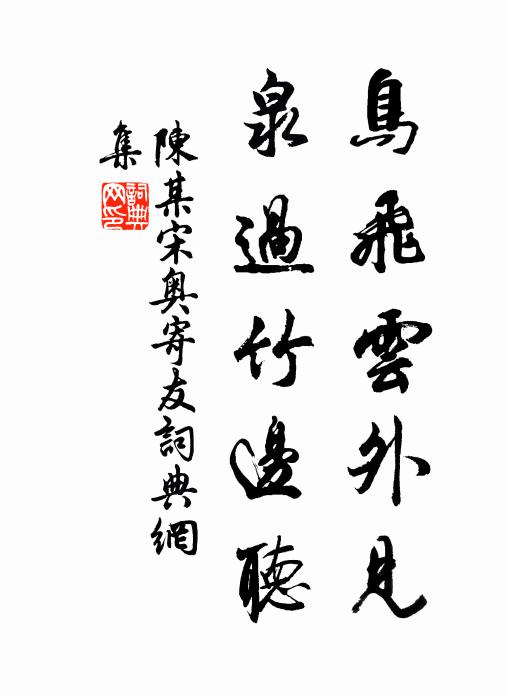 鳥飛雲外見
泉過竹邊聽
陳某宋奧寄友詞典網
集
詞典
网印